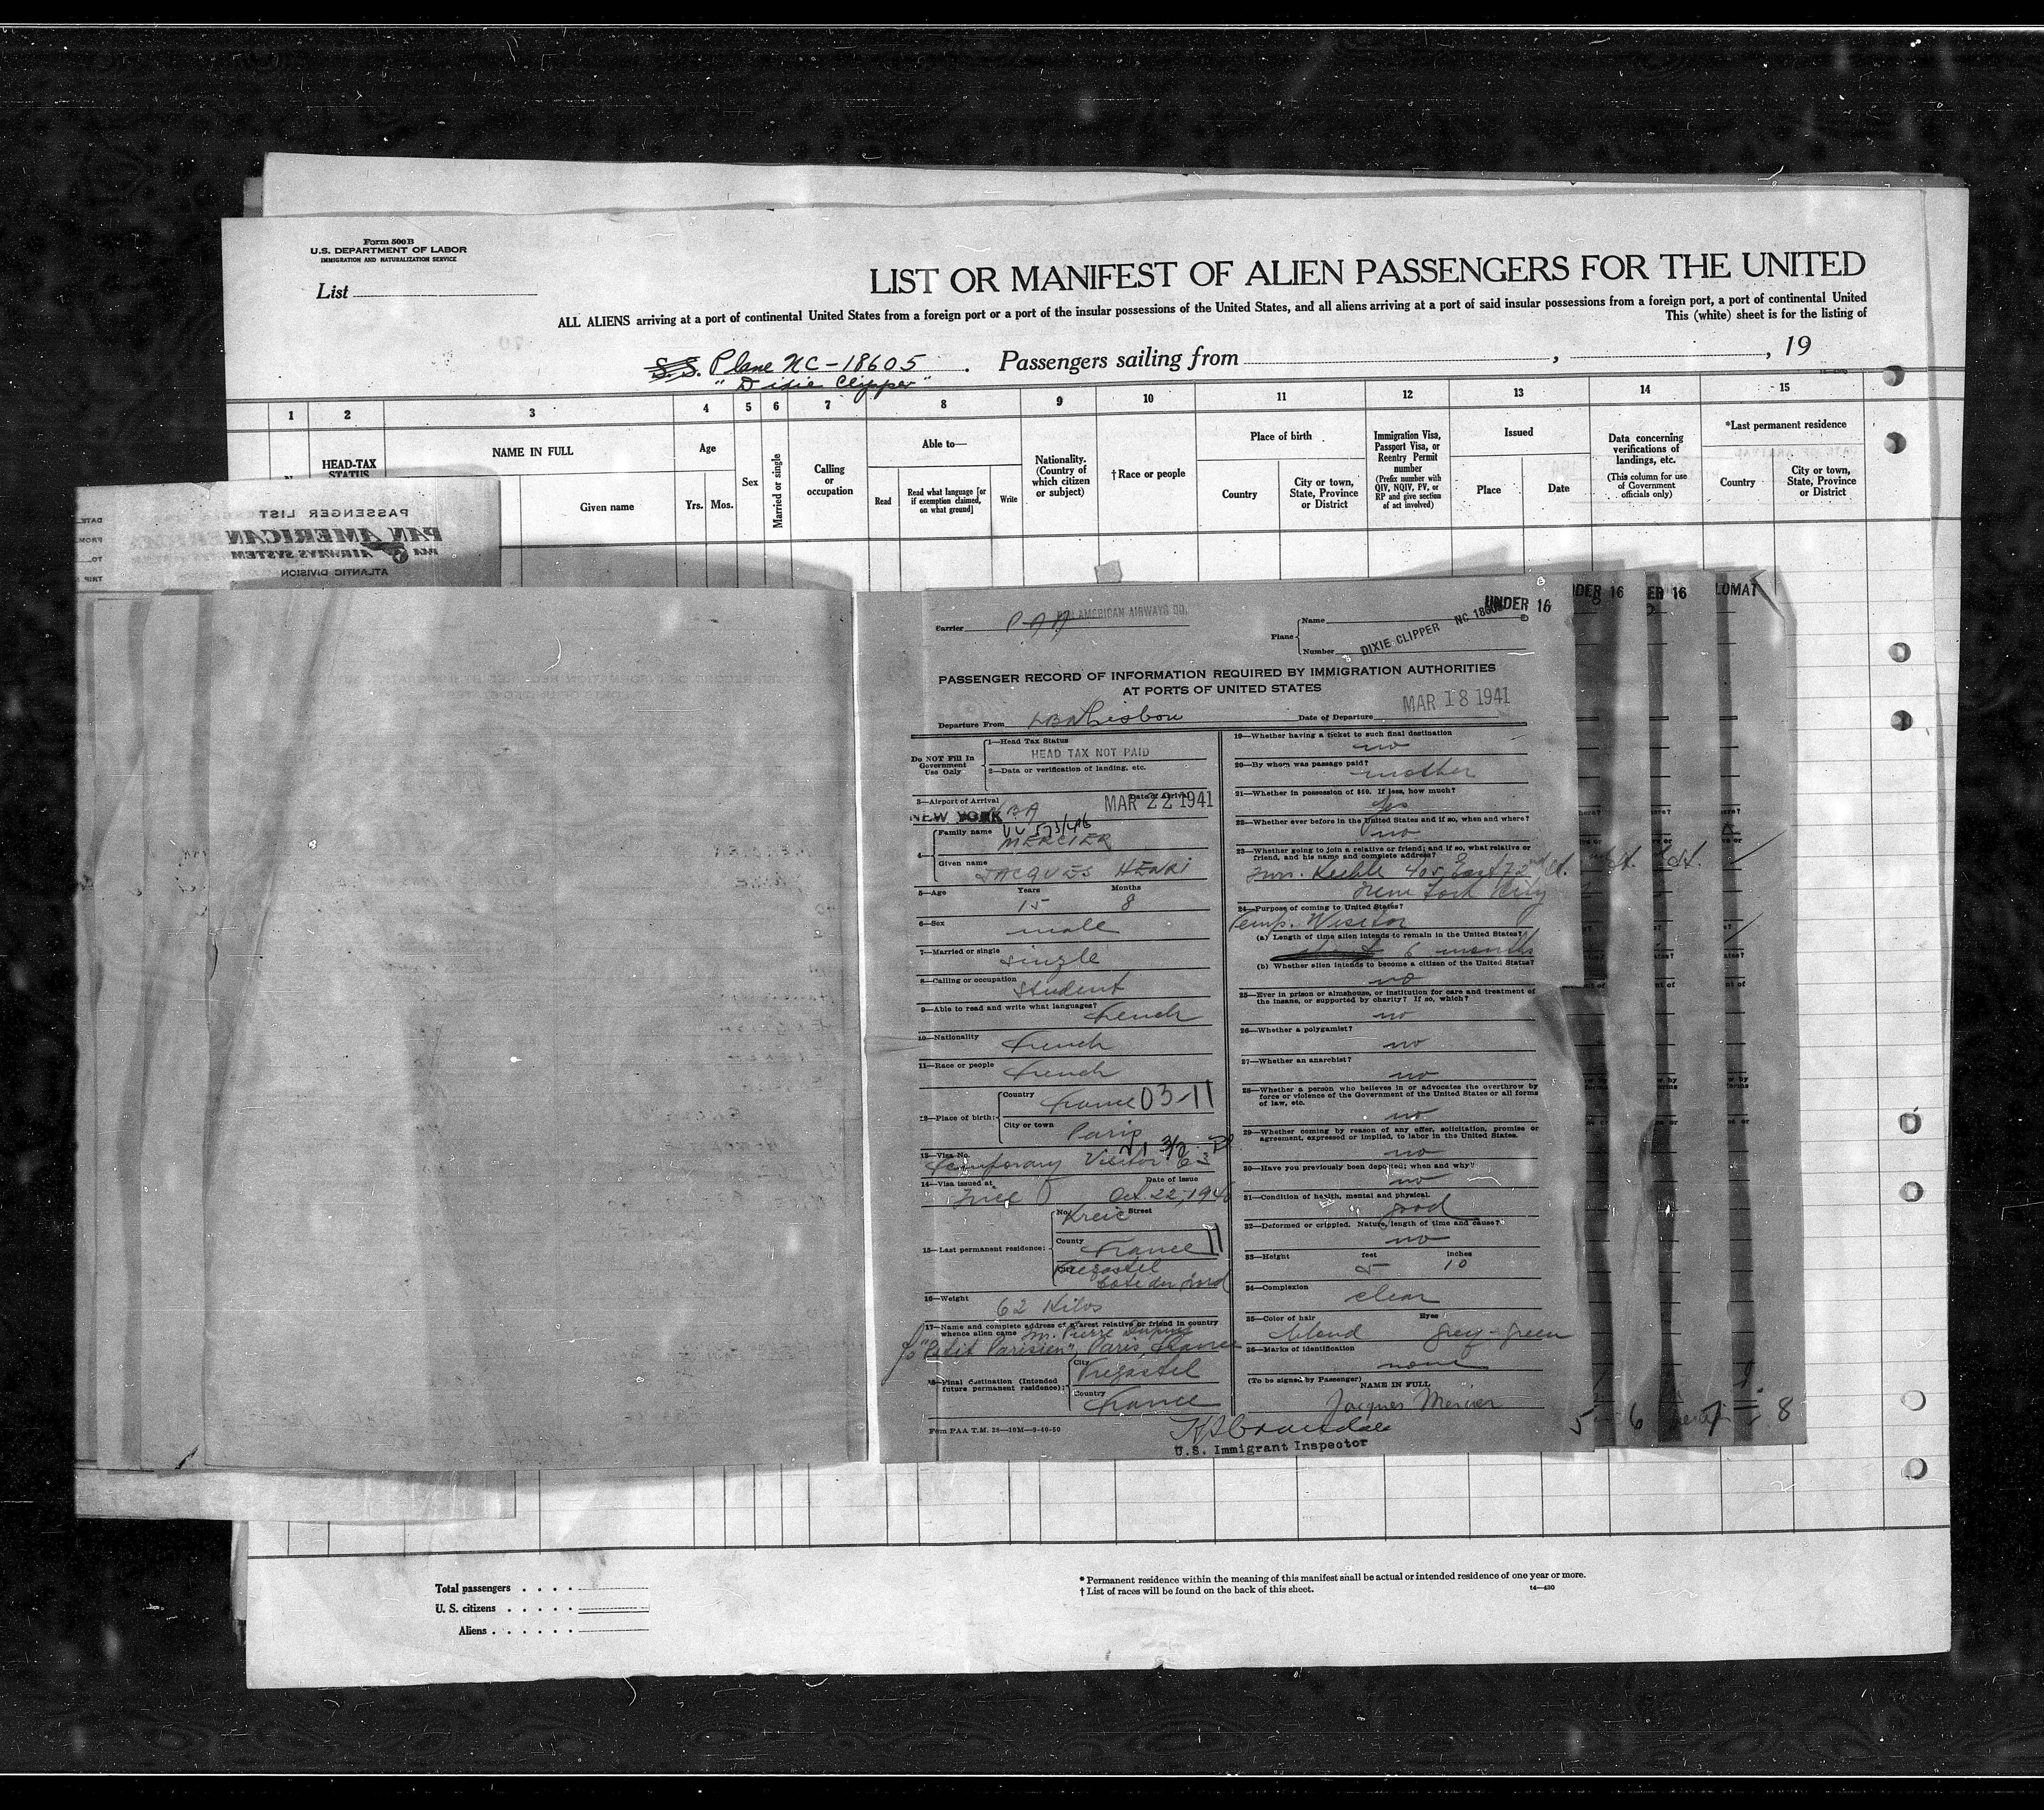 Form 500B
U.S. DEPARTMENT OF LABOR
IMMIGRATION AND NATURALIZATION SERVICE
List
LIST OR MANIFEST OF ALIEN PASSENGERS FOR THE UNITED
ALL ALIENS arriving at a port of continental United States from a foreign port or a port of the insular possessions of the United States, and all aliens arriving at a port of said insular possessions from a foreign port, a port of continental United
This (white) sheet is for the listing of
S.S. Plane NC-18605 . Passengers sailing from , , 19
"Dixie Clipper"
1 2 3 4 5 6 7 8 9 10 11 12 13 14 15
HEAD-TAX
STATUS
NAME IN FULL
Given name
Age
Yrs. Mos.
Sex
Married or single
Calling
or
occupation
Able to—
Read
Read what language [or
if exemption claimed,
on what ground]
Write
Nationality.
(Country of
which citizen
or subject)
†Race or people
Place of birth
Country
City or town,
State, Province
or District
Immigration Visa,
Passport Visa, or
Reentry Permit
number
(Prefix number with
QIV, NQIV, PV, or
RP and give section
of act involved)
Issued
Place
Date
Data concerning
verifications of
landings, etc.
(This column for use
of Government
officials only)
*Last permanent residence
Country
City or town,
State, Province
or District
PASSENGER LIST
PAN AMERICAN
AIRWAYS SYSTEM
ATLANTIC DIVISION
DATE
FROM
TO
TRIP
UNDER 16
Carrier PAA PAN AMERICAN AIRWAYS CO.
Plane
Name
Number
DIXIE CLIPPER NC 18605
PASSENGER RECORD OF INFORMATION REQUIRED BY IMMIGRATION AUTHORITIES
AT PORTS OF UNITED STATES
Departure From Lisbon Date of Departure MAR 18 1941
Do NOT Fill In
Government
Use Only
1—Head Tax Status
HEAD TAX NOT PAID
2—Data or verification of landing, etc.
3—Airport of Arrival Date of Arrival
NEW YORK MAR 22 1941
4—
Family name
MERCIER
Given name
JACQUES HENRI
5—Age Years Months
15 8
6—Sex
male
7—Married or single
single
8—Calling or occupation
student
9—Able to read and write what languages?
french
10—Nationality
french
11—Race or people
french
12—Place of birth:
Country
france 03-11
City or town
Paris
13—Visa No.
temporary Visitor
14—Visa issued at Date of Issue
Nice Oct. 22, 1940
15—Last permanent residence:
No. Street
County
france 11
City
Tregastel
16—Weight
62 Kilos
17—Name and complete address of nearest relative or friend in country
whence alien came M. Pierre Dupuy
"Petit Parisien", Paris, france
18—Final destination (Intended
future permanent residence):
City
Tregastel
Country
france
Form PAA T.M. 28—10M—9-40-50
19—Whether having a ticket to such final destination
no
20—By whom was passage paid?
mother
21—Whether in possession of $50. If less, how much?
yes
22—Whether ever before in the United States and if so, when and where?
no
23—Whether going to join a relative or friend; and if so, what relative or
friend, and his name and complete address?
405 East 72nd St.
New York City
24—Purpose of coming to United States?
Temp. Visitor
(a) Length of time alien intends to remain in the United States?
6 months
(b) Whether alien intends to become a citizen of the United States?
no
25—Ever in prison or almshouse, or institution for care and treatment of
the insane, or supported by charity? If so, which?
no
26—Whether a polygamist?
no
27—Whether an anarchist?
no
28—Whether a person who believes in or advocates the overthrow by
force or violence of the Government of the United States or all forms
of law, etc.
no
29—Whether coming by reason of any offer, solicitation, promise or
agreement, expressed or implied, to labor in the United States.
no
30—Have you previously been deported; when and why?
no
31—Condition of health, mental and physical.
good
32—Deformed or crippled. Nature, length of time and cause?
no
33—Height feet inches
5 10
34—Complexion
clear
35—Color of hair Eyes
blond grey-green
36—Marks of identification
none
(To be signed by Passenger)
NAME IN FULL
Jacques Mercier
U.S. Immigrant Inspector
5 6 7 8
Total passengers
U. S. citizens
Aliens
* Permanent residence within the meaning of this manifest shall be actual or intended residence of one year or more.
† List of races will be found on the back of this sheet.
14—430